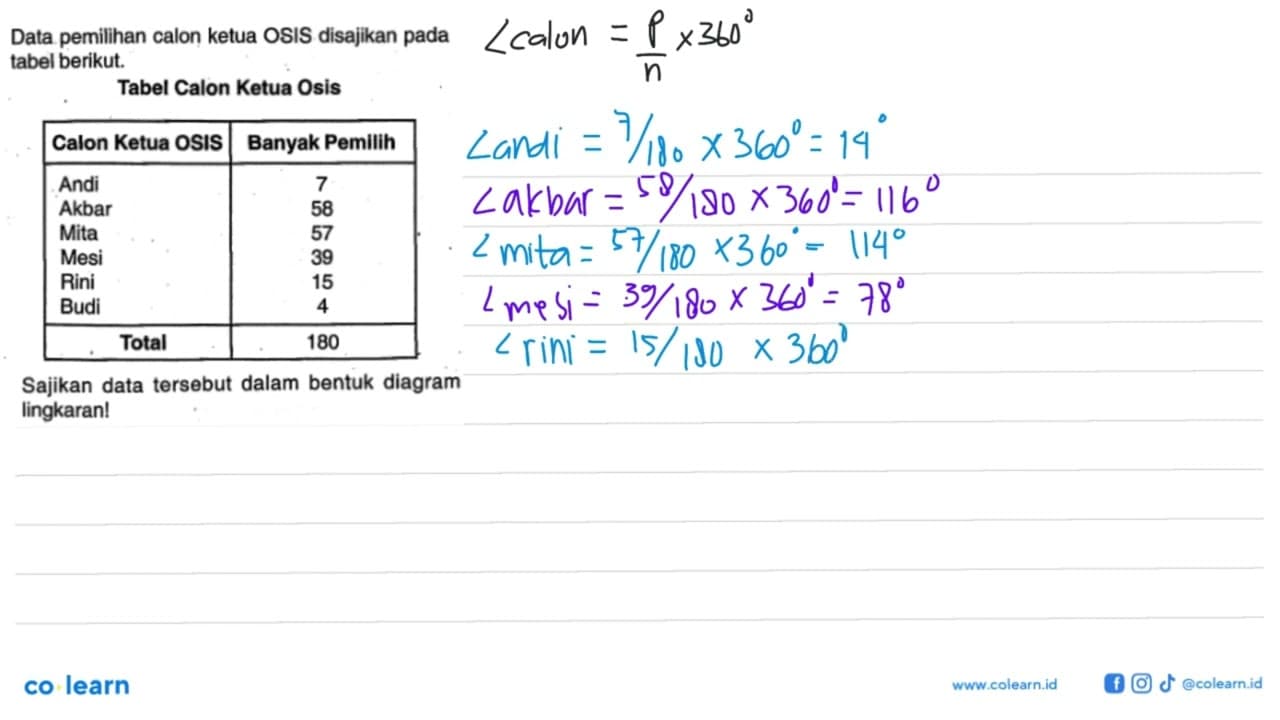 Data pemilihan calon ketua OSIS disajikan pada
tabel berikut.
Tabel Calon Ketua Osis
Calon Ketua OSIS Banyak Pemilih
Andi 7
Akbar 58
Mita 57
Mesi 39
Rini 15
Budi 4
Total 180
Sajikan data tersebut dalam bentuk diagram
lingkaran!
∠calon = p/n x 360°
∠andi = 7/180 x 360° = 14°
∠akbar = 58/180 x 360° = 116°
∠mita = 57/180 x 360° = 114°
∠mesi = 39/180 x 360° = 78°
∠rini = 15/180 x 360°
co learn
www.colearn.id
@colearn.id